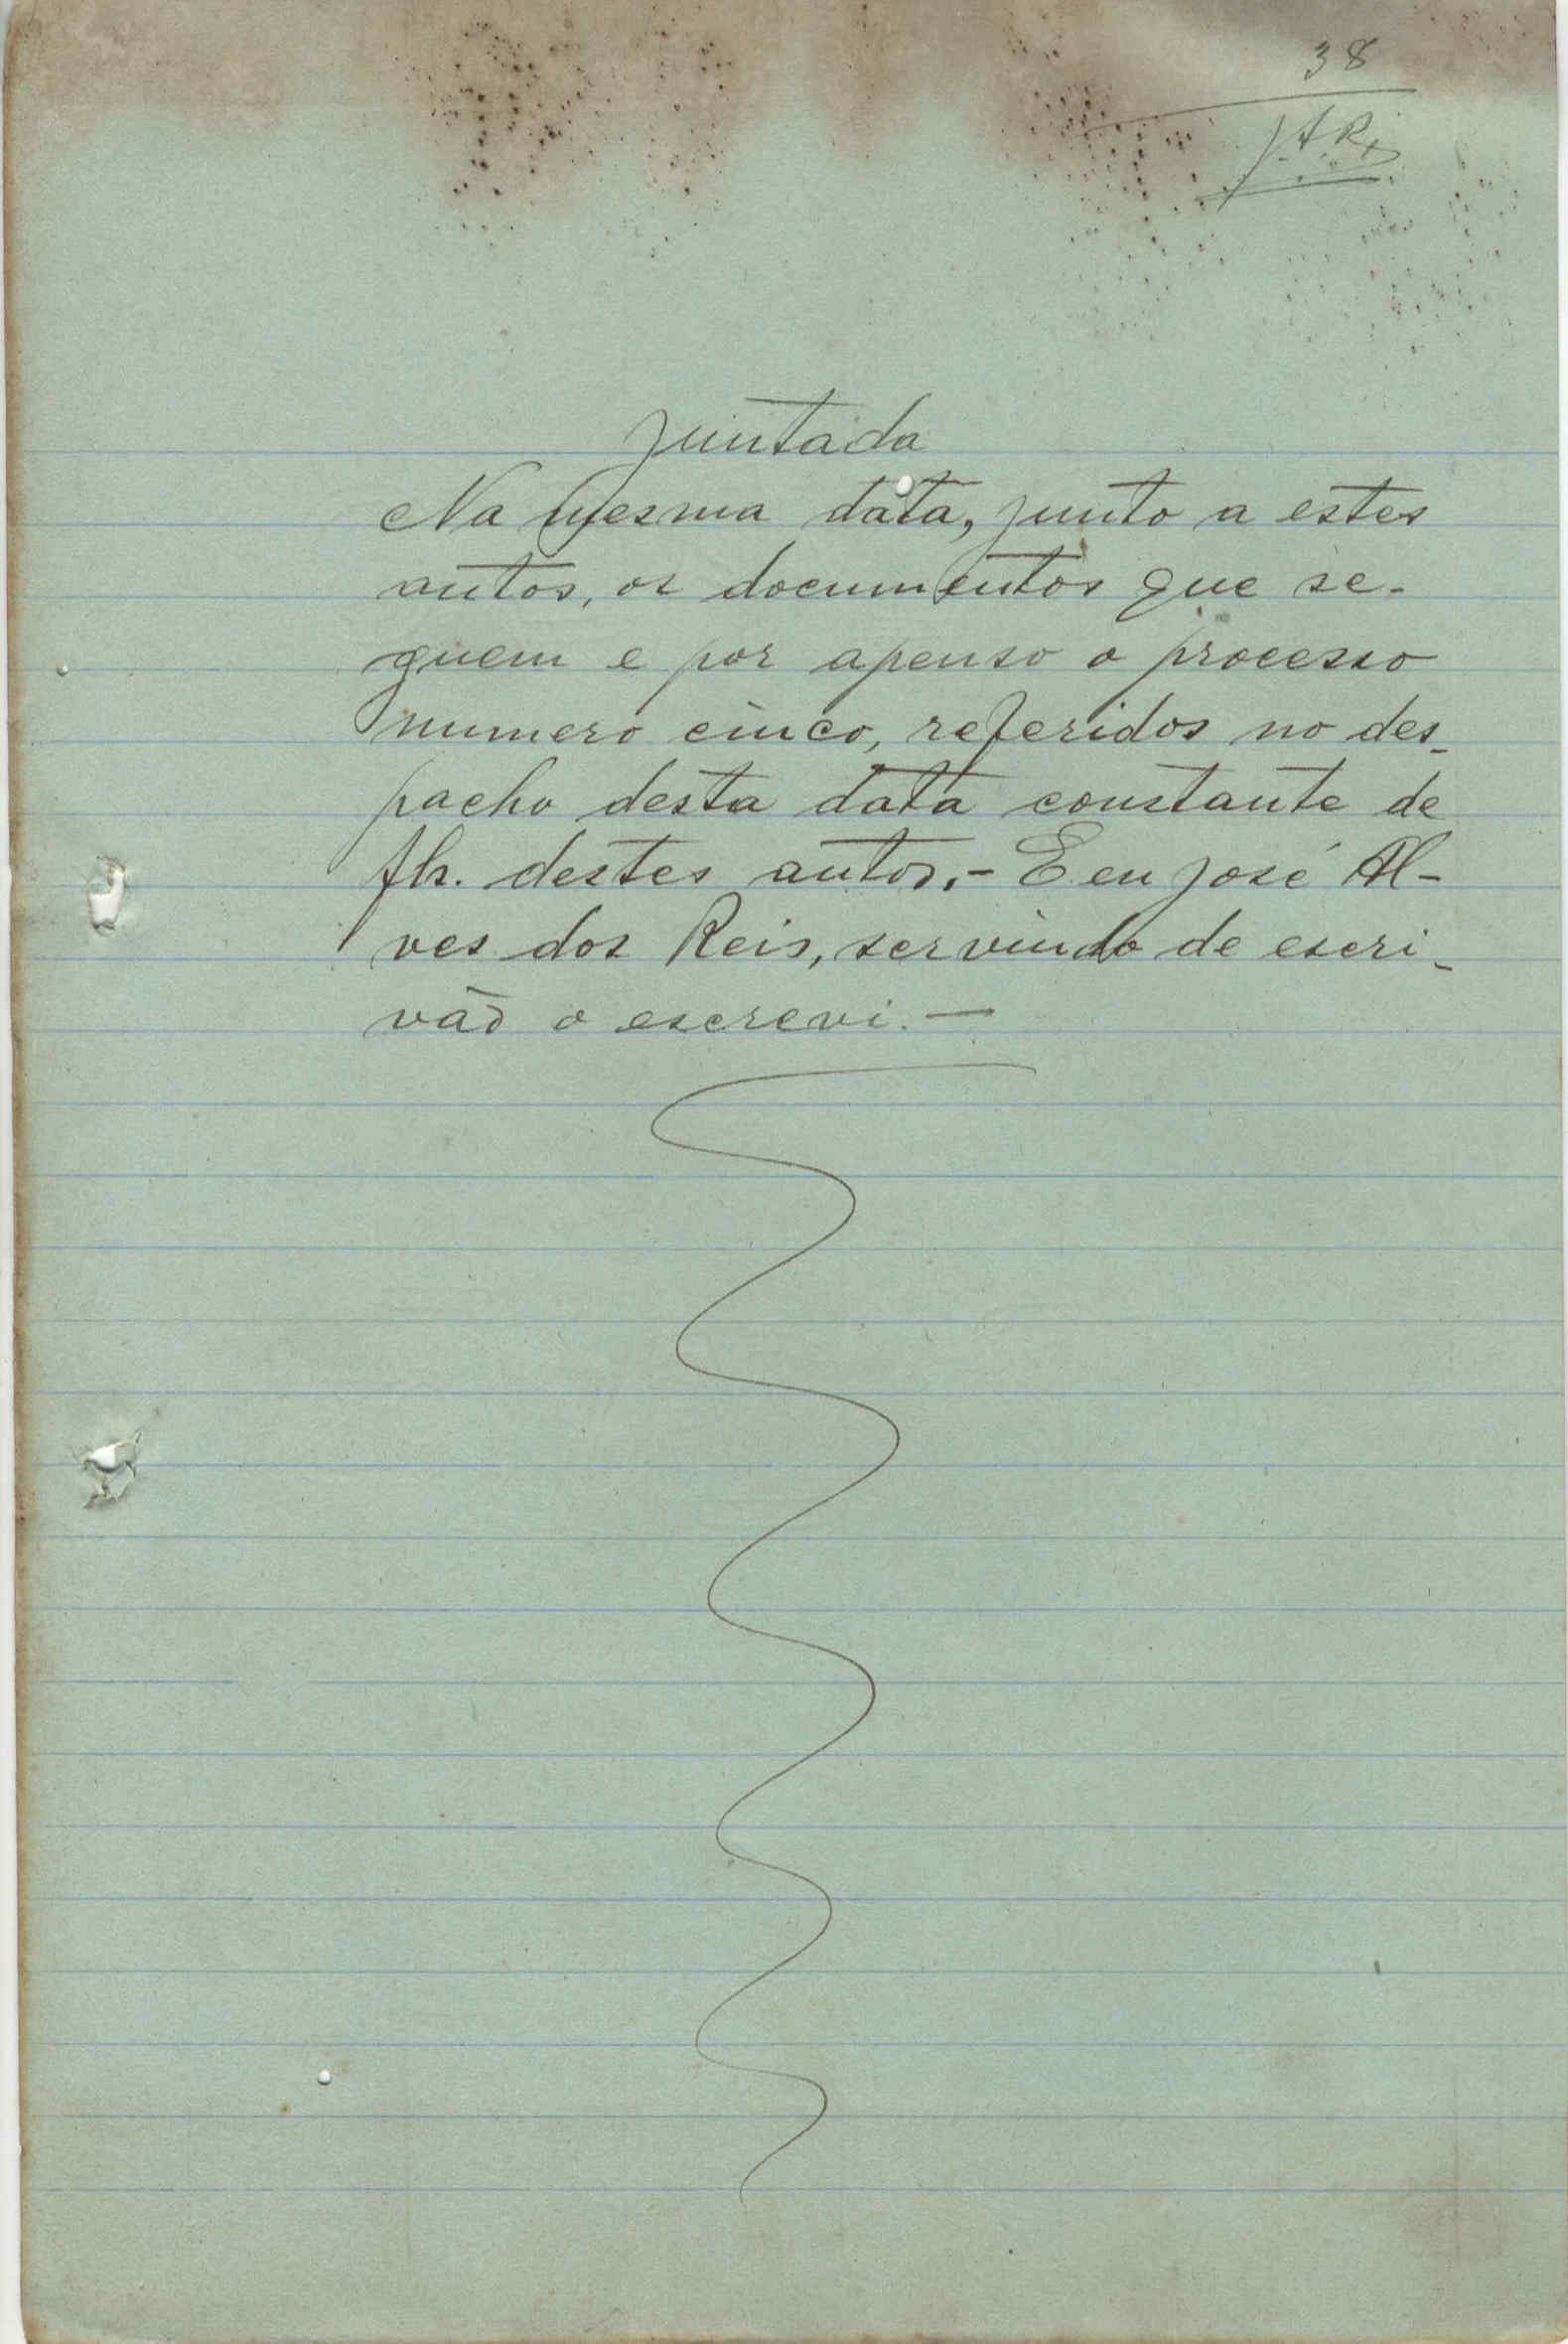 38
J.A.R.
Juntada
Na mesma data, junto a estes
autos, os documentos que se-
guem e por apenso o processo
numero cinco, referidos no des-
pacho desta data constante de
fls. destes autos.- E eu José Al-
ves dos Reis, servindo de escri-
vão o escrevi.-